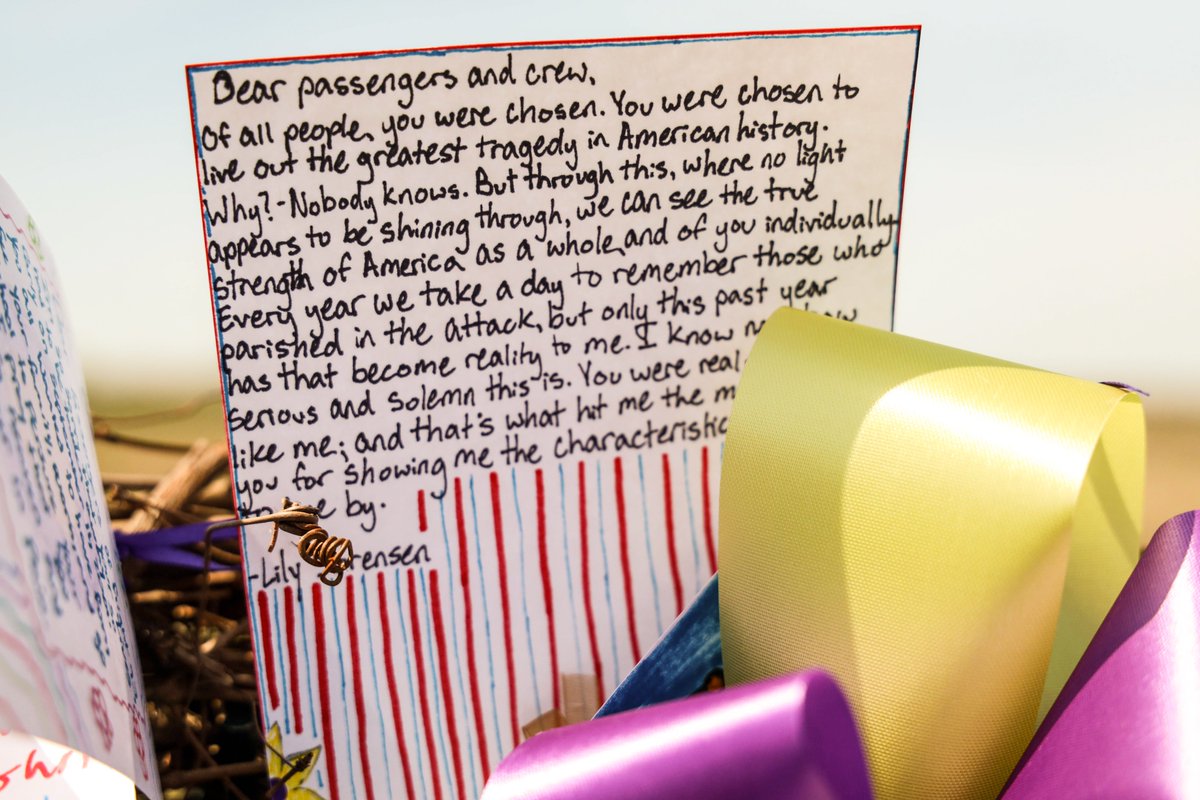 Dear passengers and crew,
Of all people, you were chosen. You were chosen to
live out the greatest tragedy in American history.
Why?-Nobody knows. But through this, where no light
appears to be shining through, we can see the true
strength of America as a whole, and of you individually.
Every year we take a day to remember those who
parished in the attack, but only this past year
has that become reality to me. I know
serious and solemn this is. You were real
like me; and that's what hit me the
you for showing me the characteristic
by.
-Lily